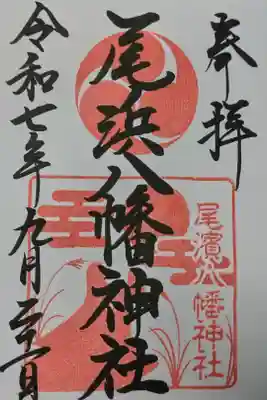 奉拝
尾浜八幡神社
尾濱八幡神社
令和七年九月二十一日